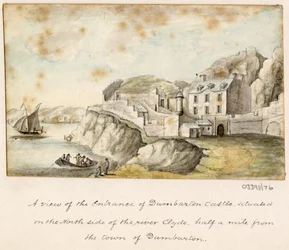 03390/76
A view of the Entrance of Dumbarton Castle, situated
on the North side of the river Clyde, half a mile from
the town of Dumbarton.